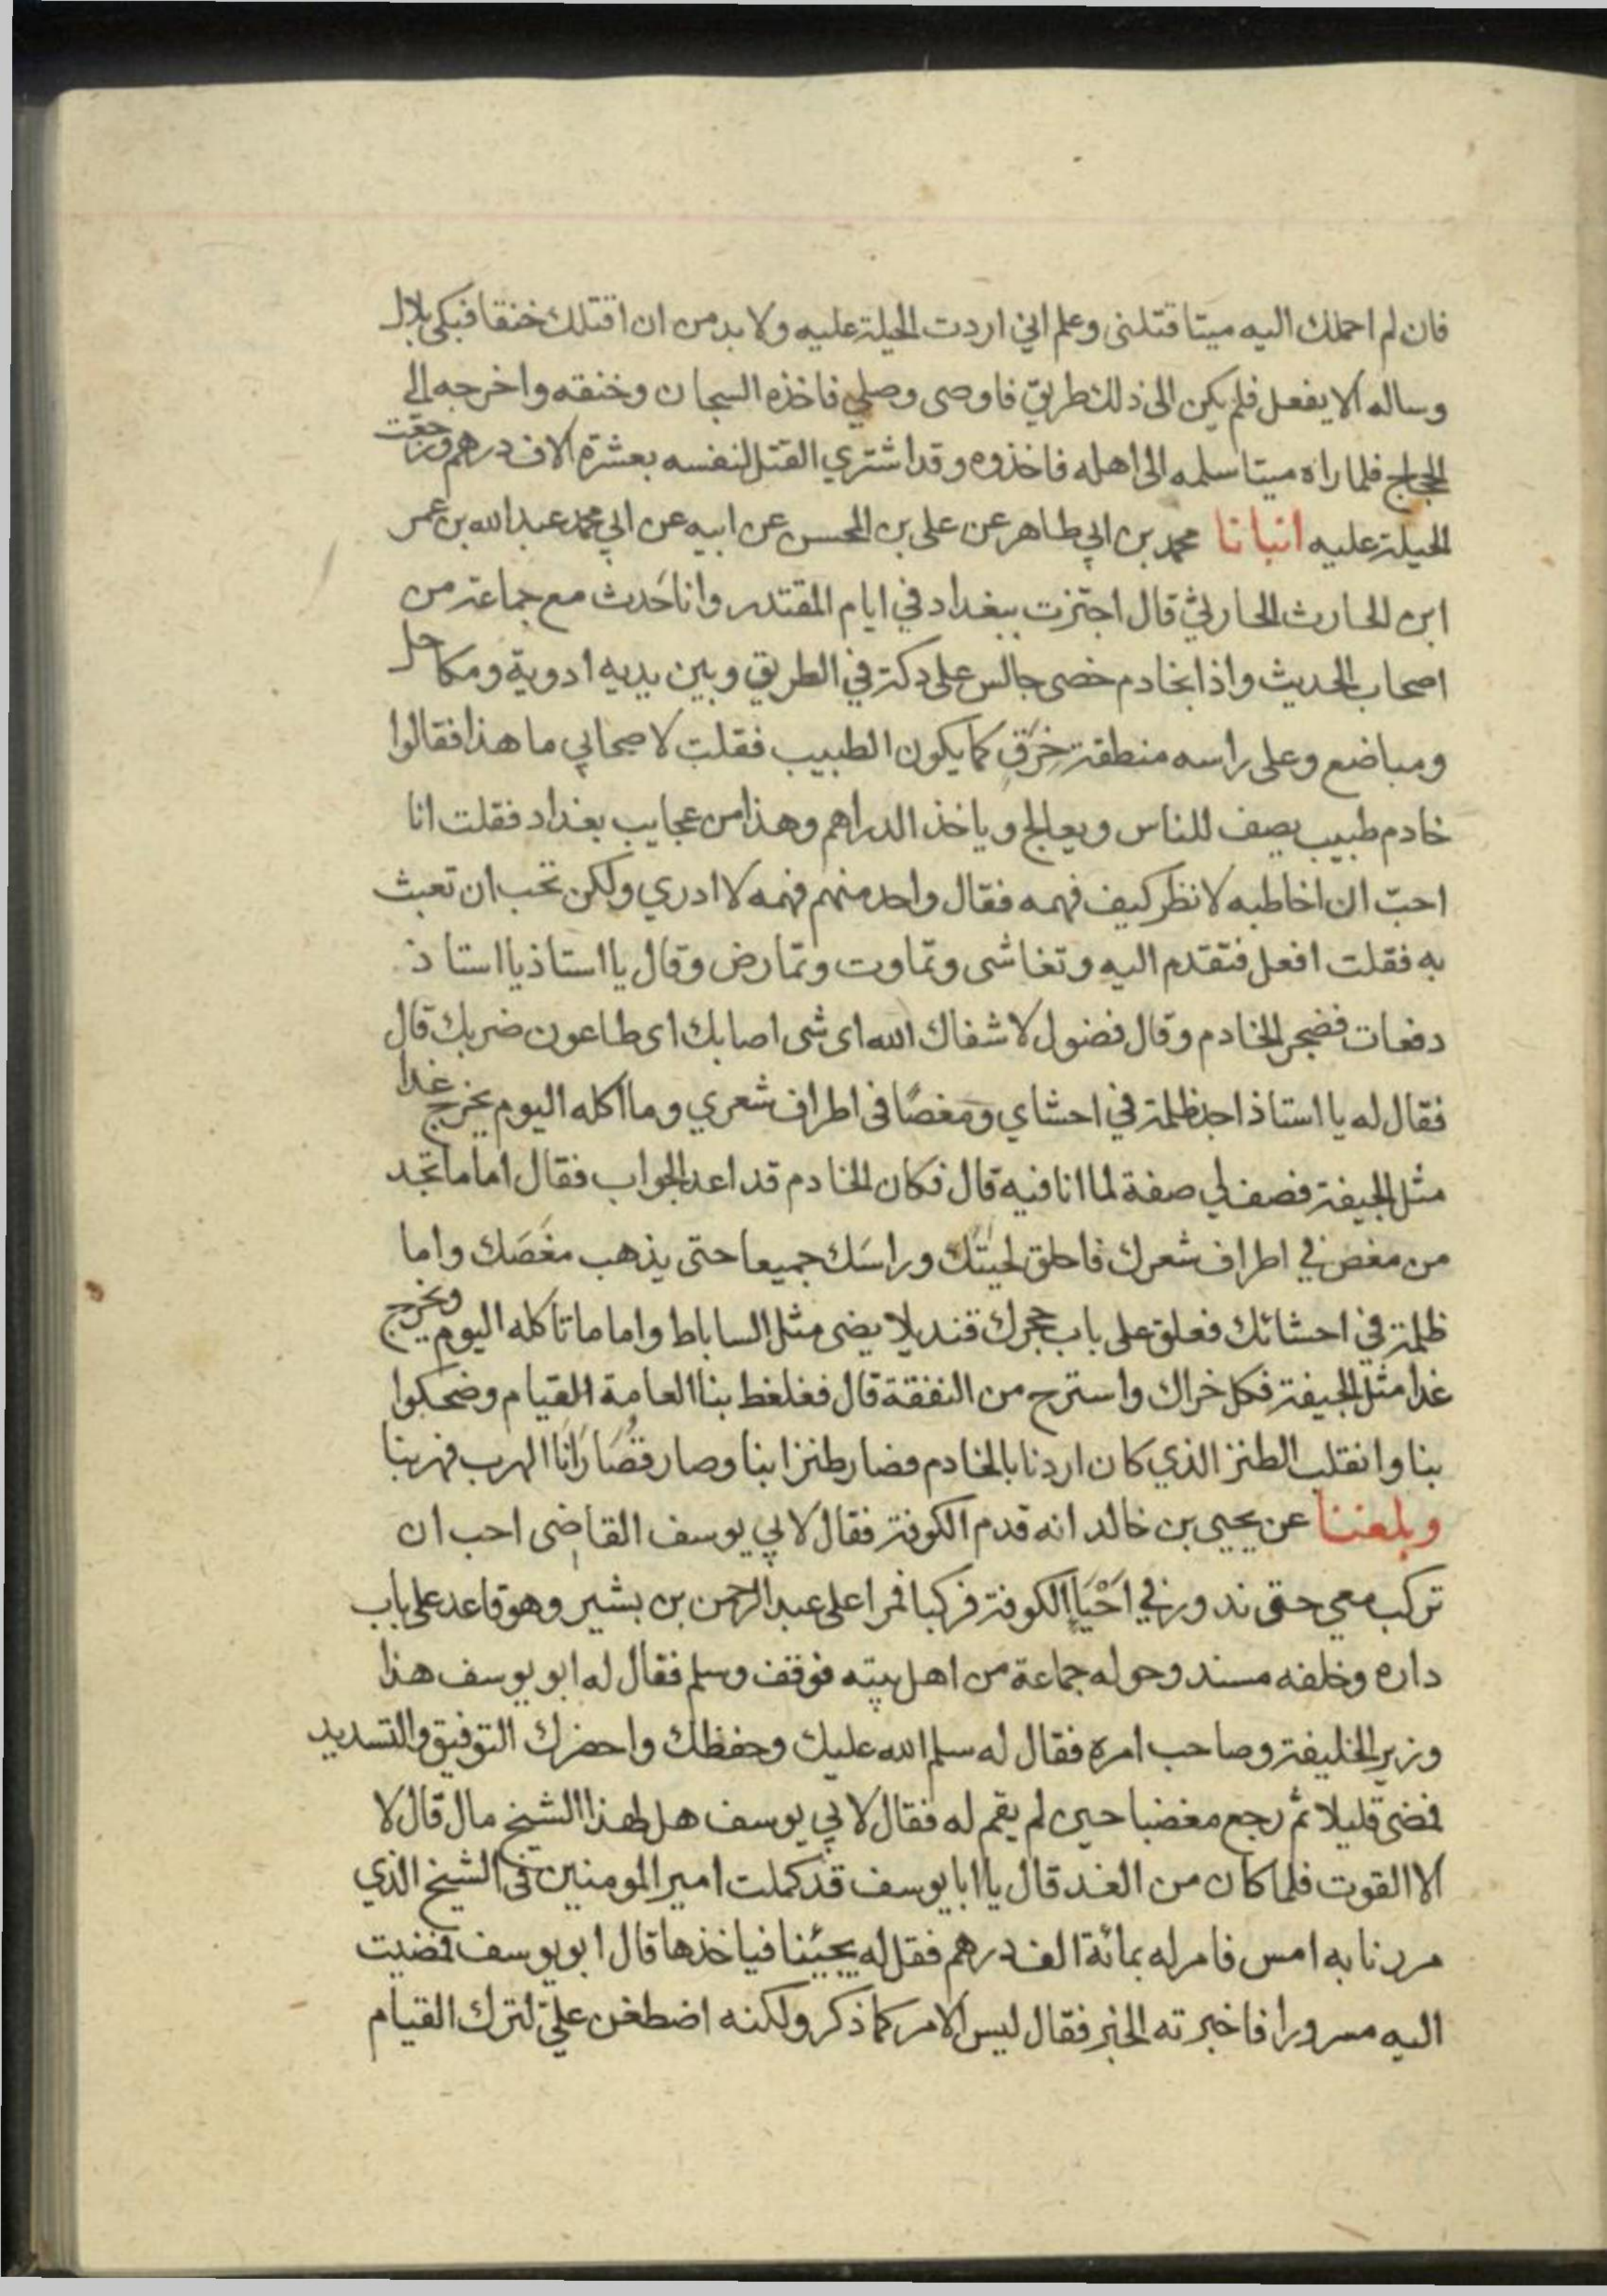 فان لم احملك اليه ميتا قتلنى وعلم انى اردت الحيلة عليه ولا بد من ان اقتلك خنقا فبكى بلال
وساله الا يفعل فلم يكن الى ذلك طريق فاوصى وصلي فاخذه السجان وخنقه واخرجه الى
الحجاج فلما راه ميتا سلمه الى اهله فاخذوه وقد اشتري القتل لنفسه بعشرة الاف درهم ورجعت
الحيلة عليه انبانا محمد بن ابي طاهر عن على بن المحسن عن ابيه عن ابي محمد عبد الله بن عمر
ابن الحارث الحارثي قال اجتزت ببغداد في ايام المقتدر وانا حَدث مع جماعة من
اصحاب الحديث واذا بخادم خصى جالس على دكة في الطريق وبين يديه ادوية ومكاحل
ومباضع وعلى راسه منطقة خِرَقٍ كما يكون الطبيب فقلت لاصحابي ما هذا فقالوا
خادم طبيب يصف للناس ويعالج وياخذ الدراهم وهذا من عجايب بغداد فقلت انا
احبّ ان اخاطبه لانظر كيف فهمه فقال واحد منهم فهمه لا ادري ولكن تحب ان تعبث
به فقلت افعل فتقدم اليه وتغاشى وتماوت وتمارض وقال يا استاذ يا استاذ
دفعات فضجر الخادم وقال فضول لا شفاك الله اى شى اصابك اى طاعون ضربك قال
فقال له يا استاذ اجد ظلمة في احشاي ومغصًا فى اطراف شعري وما اكله اليوم يخرج غدا
مثل الجيفة فصف لي صفة لما انا فيه قال فكان الخادم قد اعد الجواب فقال اما ما تجد
من مغص في اطراف شعرك فاحلق لحيتك وراسَك جميعا حتى يذهب مغَصَك واما
ظلمة في احشائك فعلق على باب حجرك قنديلا يضى مثل الساباط واما ما تاكله اليوم ويخرج
غدا مثل الجيفة فكل خراك واسترح من النفقة قال فغلغط بنا العامة القيام وضحكوا
بنا وانقلب الطنز الذي كان اردنا بالخادم فصار طنزا بنا وصار قُصَارَانَا الهرب فهربنا
وبلغنا عن يحيى بن خالد انه قدم الكوفة فقال لابي يوسف القاضى احب ان
تركب معي حتى ندور في اَحْيَاءِ الكوفة فركبا فمرا على عبد الرحمن بن بشير وهو قاعد على باب
داره وخلفه مسند وحوله جماعة من اهل بيته فوقف وسلم فقال له ابو يوسف هذا
وزير الخليفة وصاحب امره فقال له سلم الله عليك وحفظك واحضرك التوفيق والتسديد
فمضى قليلا ثم رجع مغضبا حين لم يقم له فقال لابي يوسف هل لهذا الشيخ مال قال لا
الا القوت فلما كان من الغد قال يا ابا يوسف قد كلمت امير المومنين فى الشيخ الذي
مررنا به امس فامر له بمائة الف درهم فقل له يجيئنا فياخذها قال ابو يوسف فمضيت
اليه مسرورا فاخبرته الخبر فقال ليس الامر كما ذكر ولكنه اضطغن عليّ لترك القيام